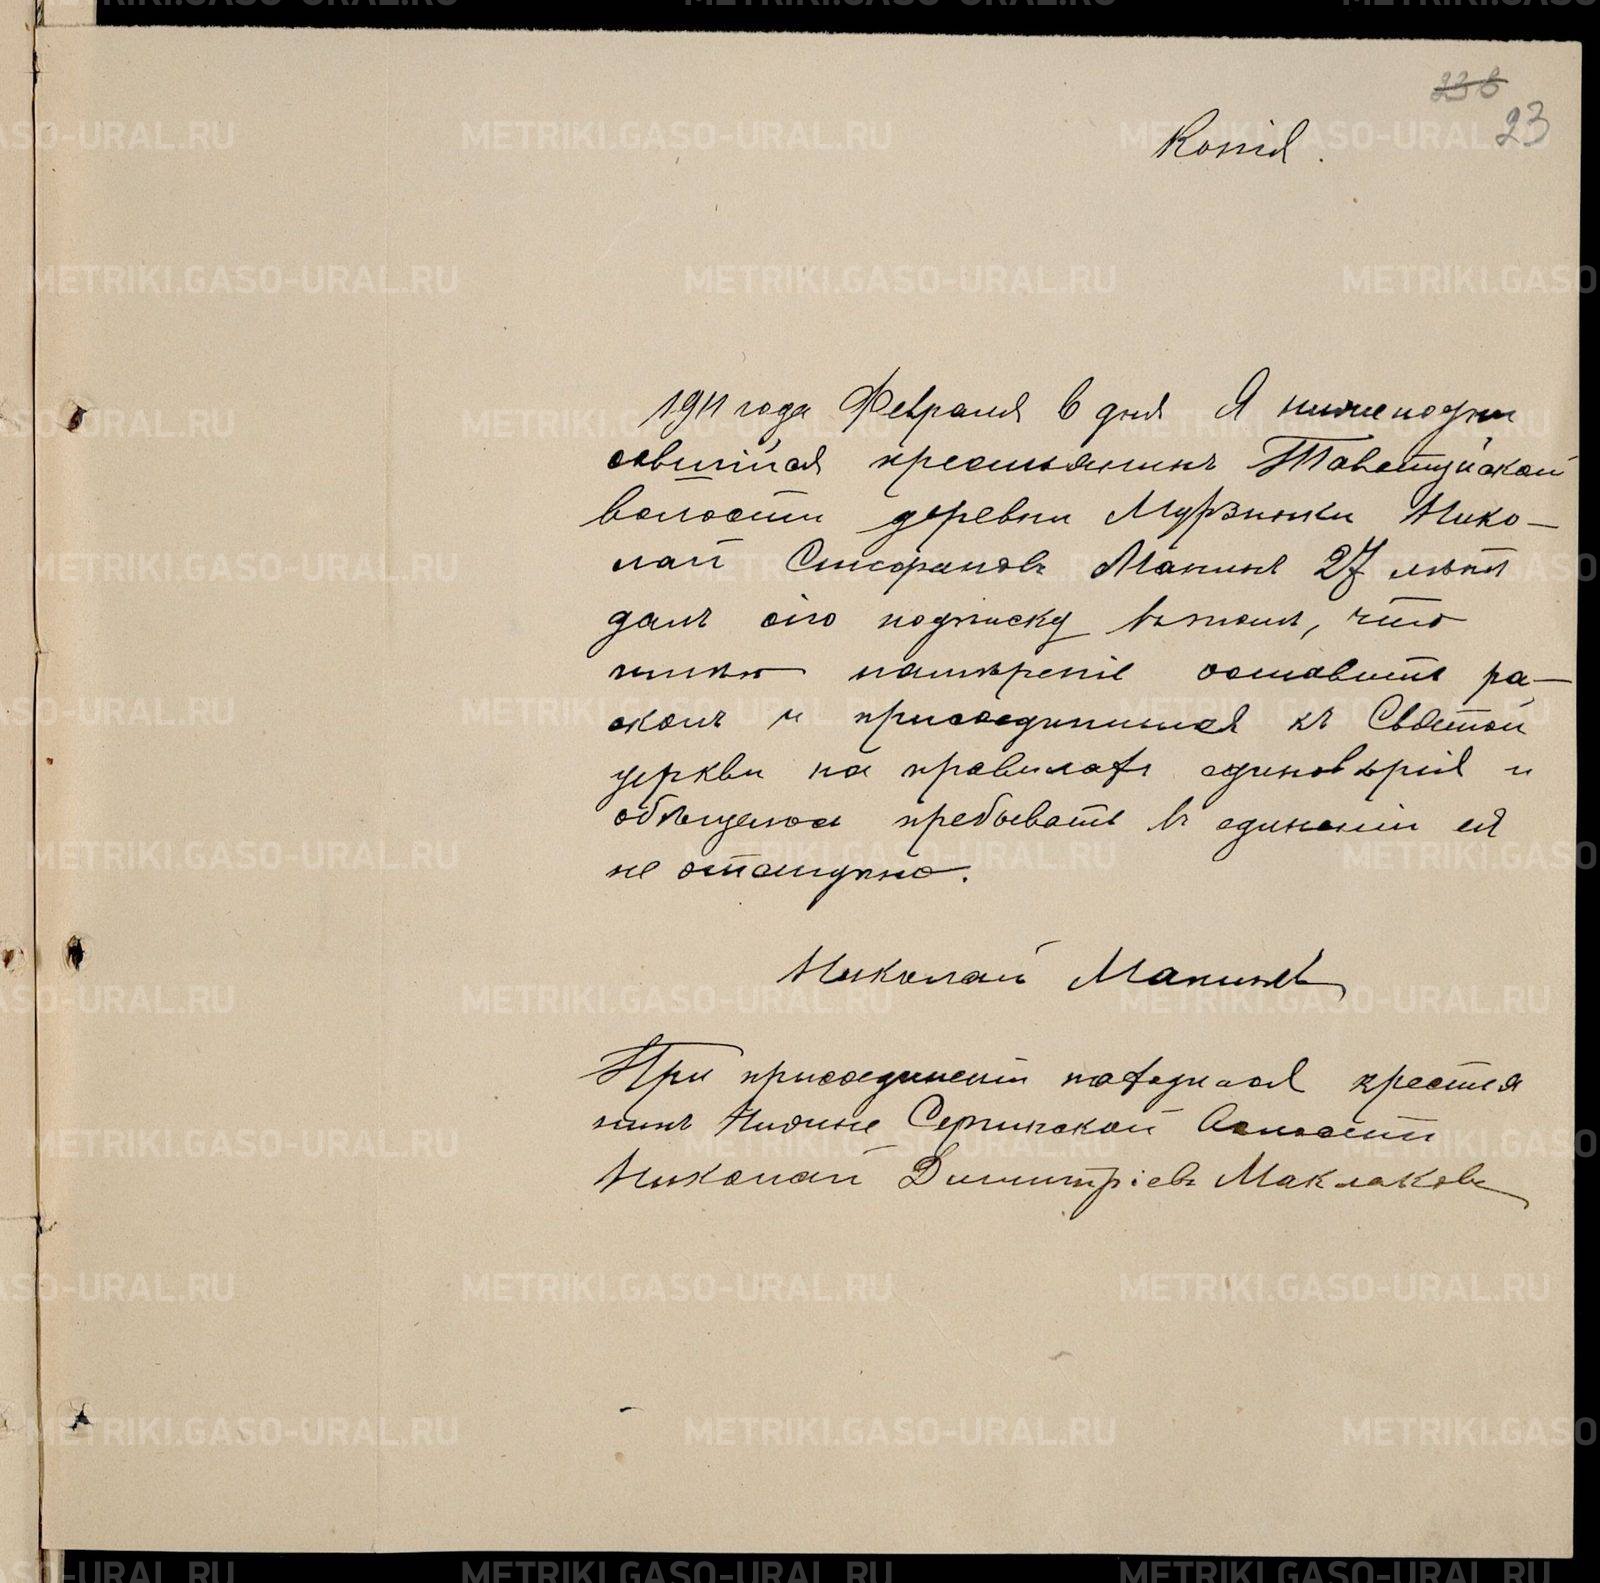 23
Копія.
1911 года Февраля 6 дня Я нижеподпи
савшійся крестьянинъ Таватуйской
волости деревни Мурзинки Нико-
лай Стефановъ Макинъ 27 лѣтъ
далъ сію подписку въ томъ, что
имѣю намѣреніе оставить ра-
сколъ и присоединиться къ Святой
церкви на правилахъ единовѣрія и
обѣщаюсь пребывать въ единеніи ея
не отступно.
Николай Макинъ
При присоединеніи находился крестья
нинъ Нижне Сергинской волости
Николай Димитріевъ Маклаковъ
METRIKI.GASO-URAL.RU